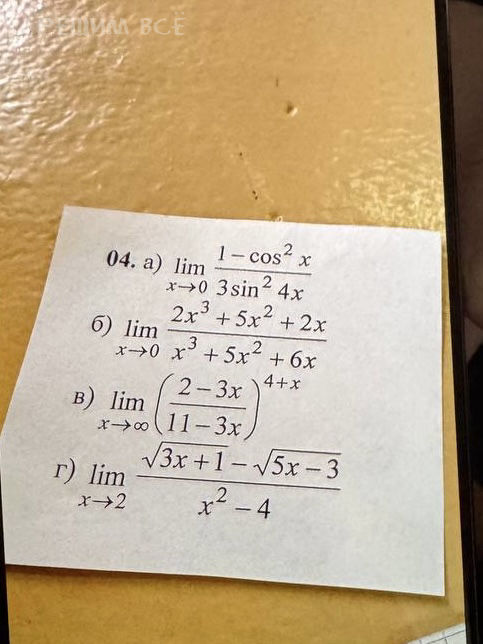 РЕШИМ ВСЁ
04. а) lim x→0 (1 − cos² x)/(3 sin² 4x)
б) lim x→0 (2x³ + 5x² + 2x)/(x³ + 5x² + 6x)
в) lim x→∞ ((2 − 3x)/(11 − 3x))^(4+x)
г) lim x→2 (√(3x + 1) − √(5x − 3))/(x² − 4)